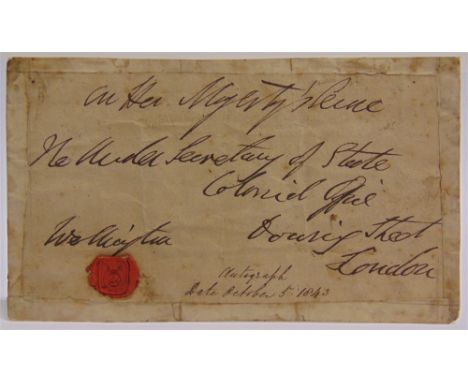 On Her Majesty's Service
The Under Secretary of State
Colonial Office
Wellington Downing Street
London
Autograph
Date October 5 1843